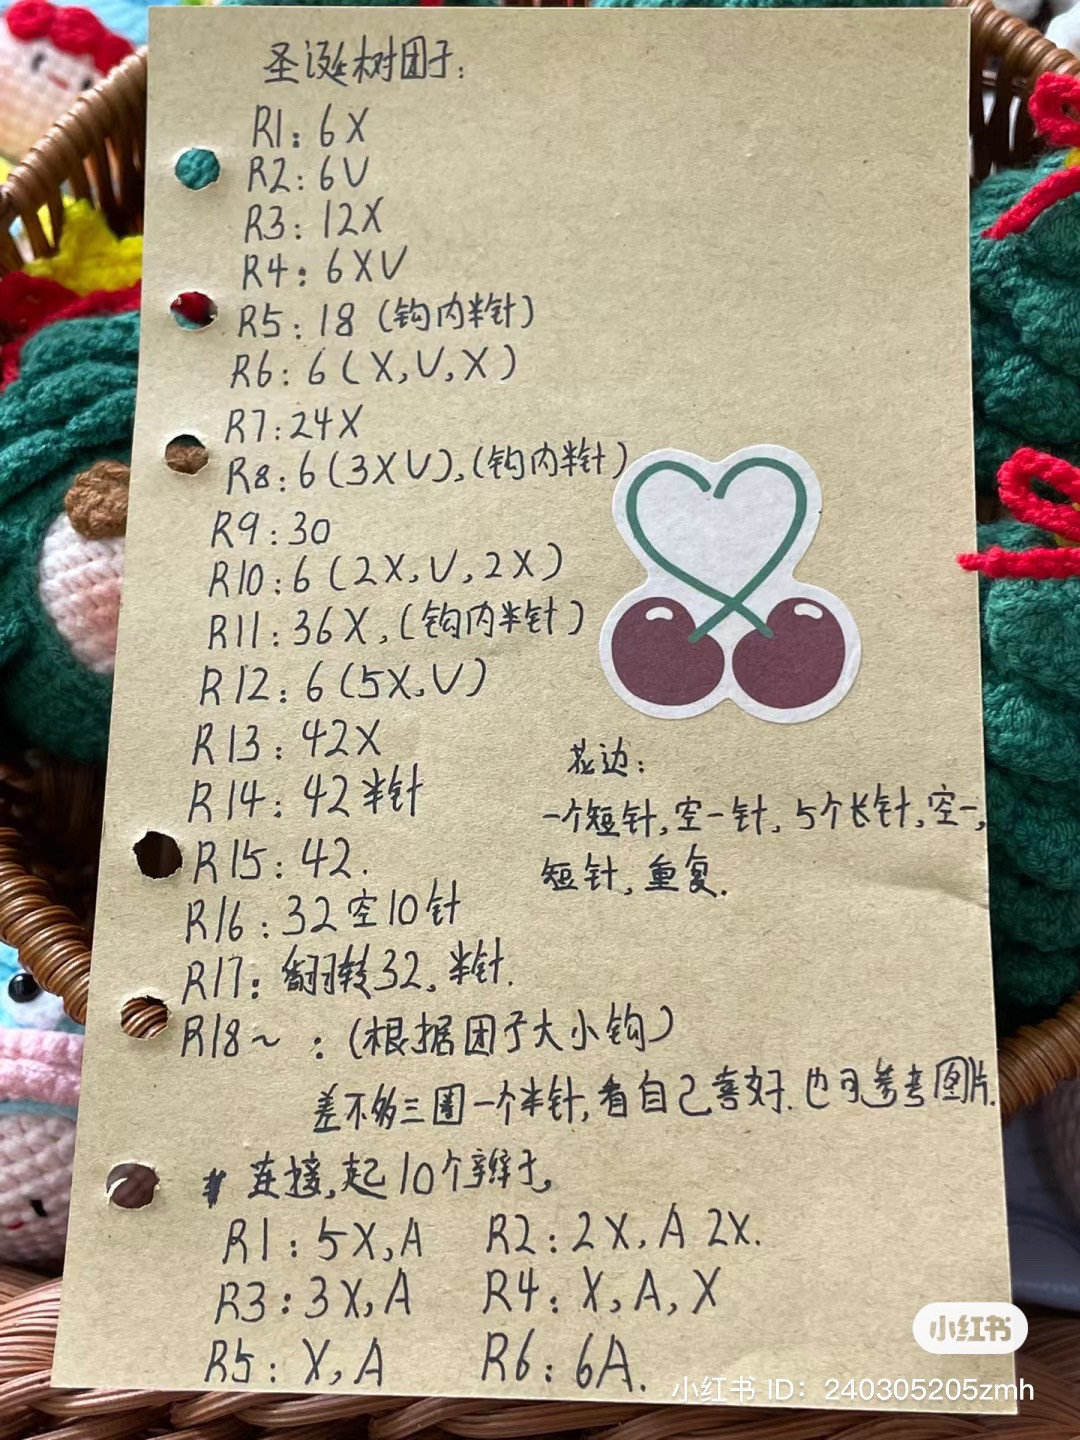 圣诞树团子:
R1: 6X
R2: 6V
R3: 12X
R4: 6XV
R5: 18 (钩内半针)
R6: 6(X,V,X)
R7: 24X
R8: 6(3XV),(钩内半针)
R9: 30
R10: 6(2X,V,2X)
R11: 36X,(钩内半针)
R12: 6(5X,V)
R13: 42X
R14: 42半针
R15: 42.
R16: 32空10针
R17: 翻转32,半针.
R18~ :(根据团子大小钩)
差不多三圈一个半针,看自己喜好.也可参考图片.
花边:
一个短针,空一针,5个长针,空一,
短针,重复.
连接,起10个辫子,
R1: 5X,A R2: 2X,A 2X.
R3: 3X,A R4: X,A,X
R5: X,A R6: 6A.
小红书
小红书 ID: 240305205zmh